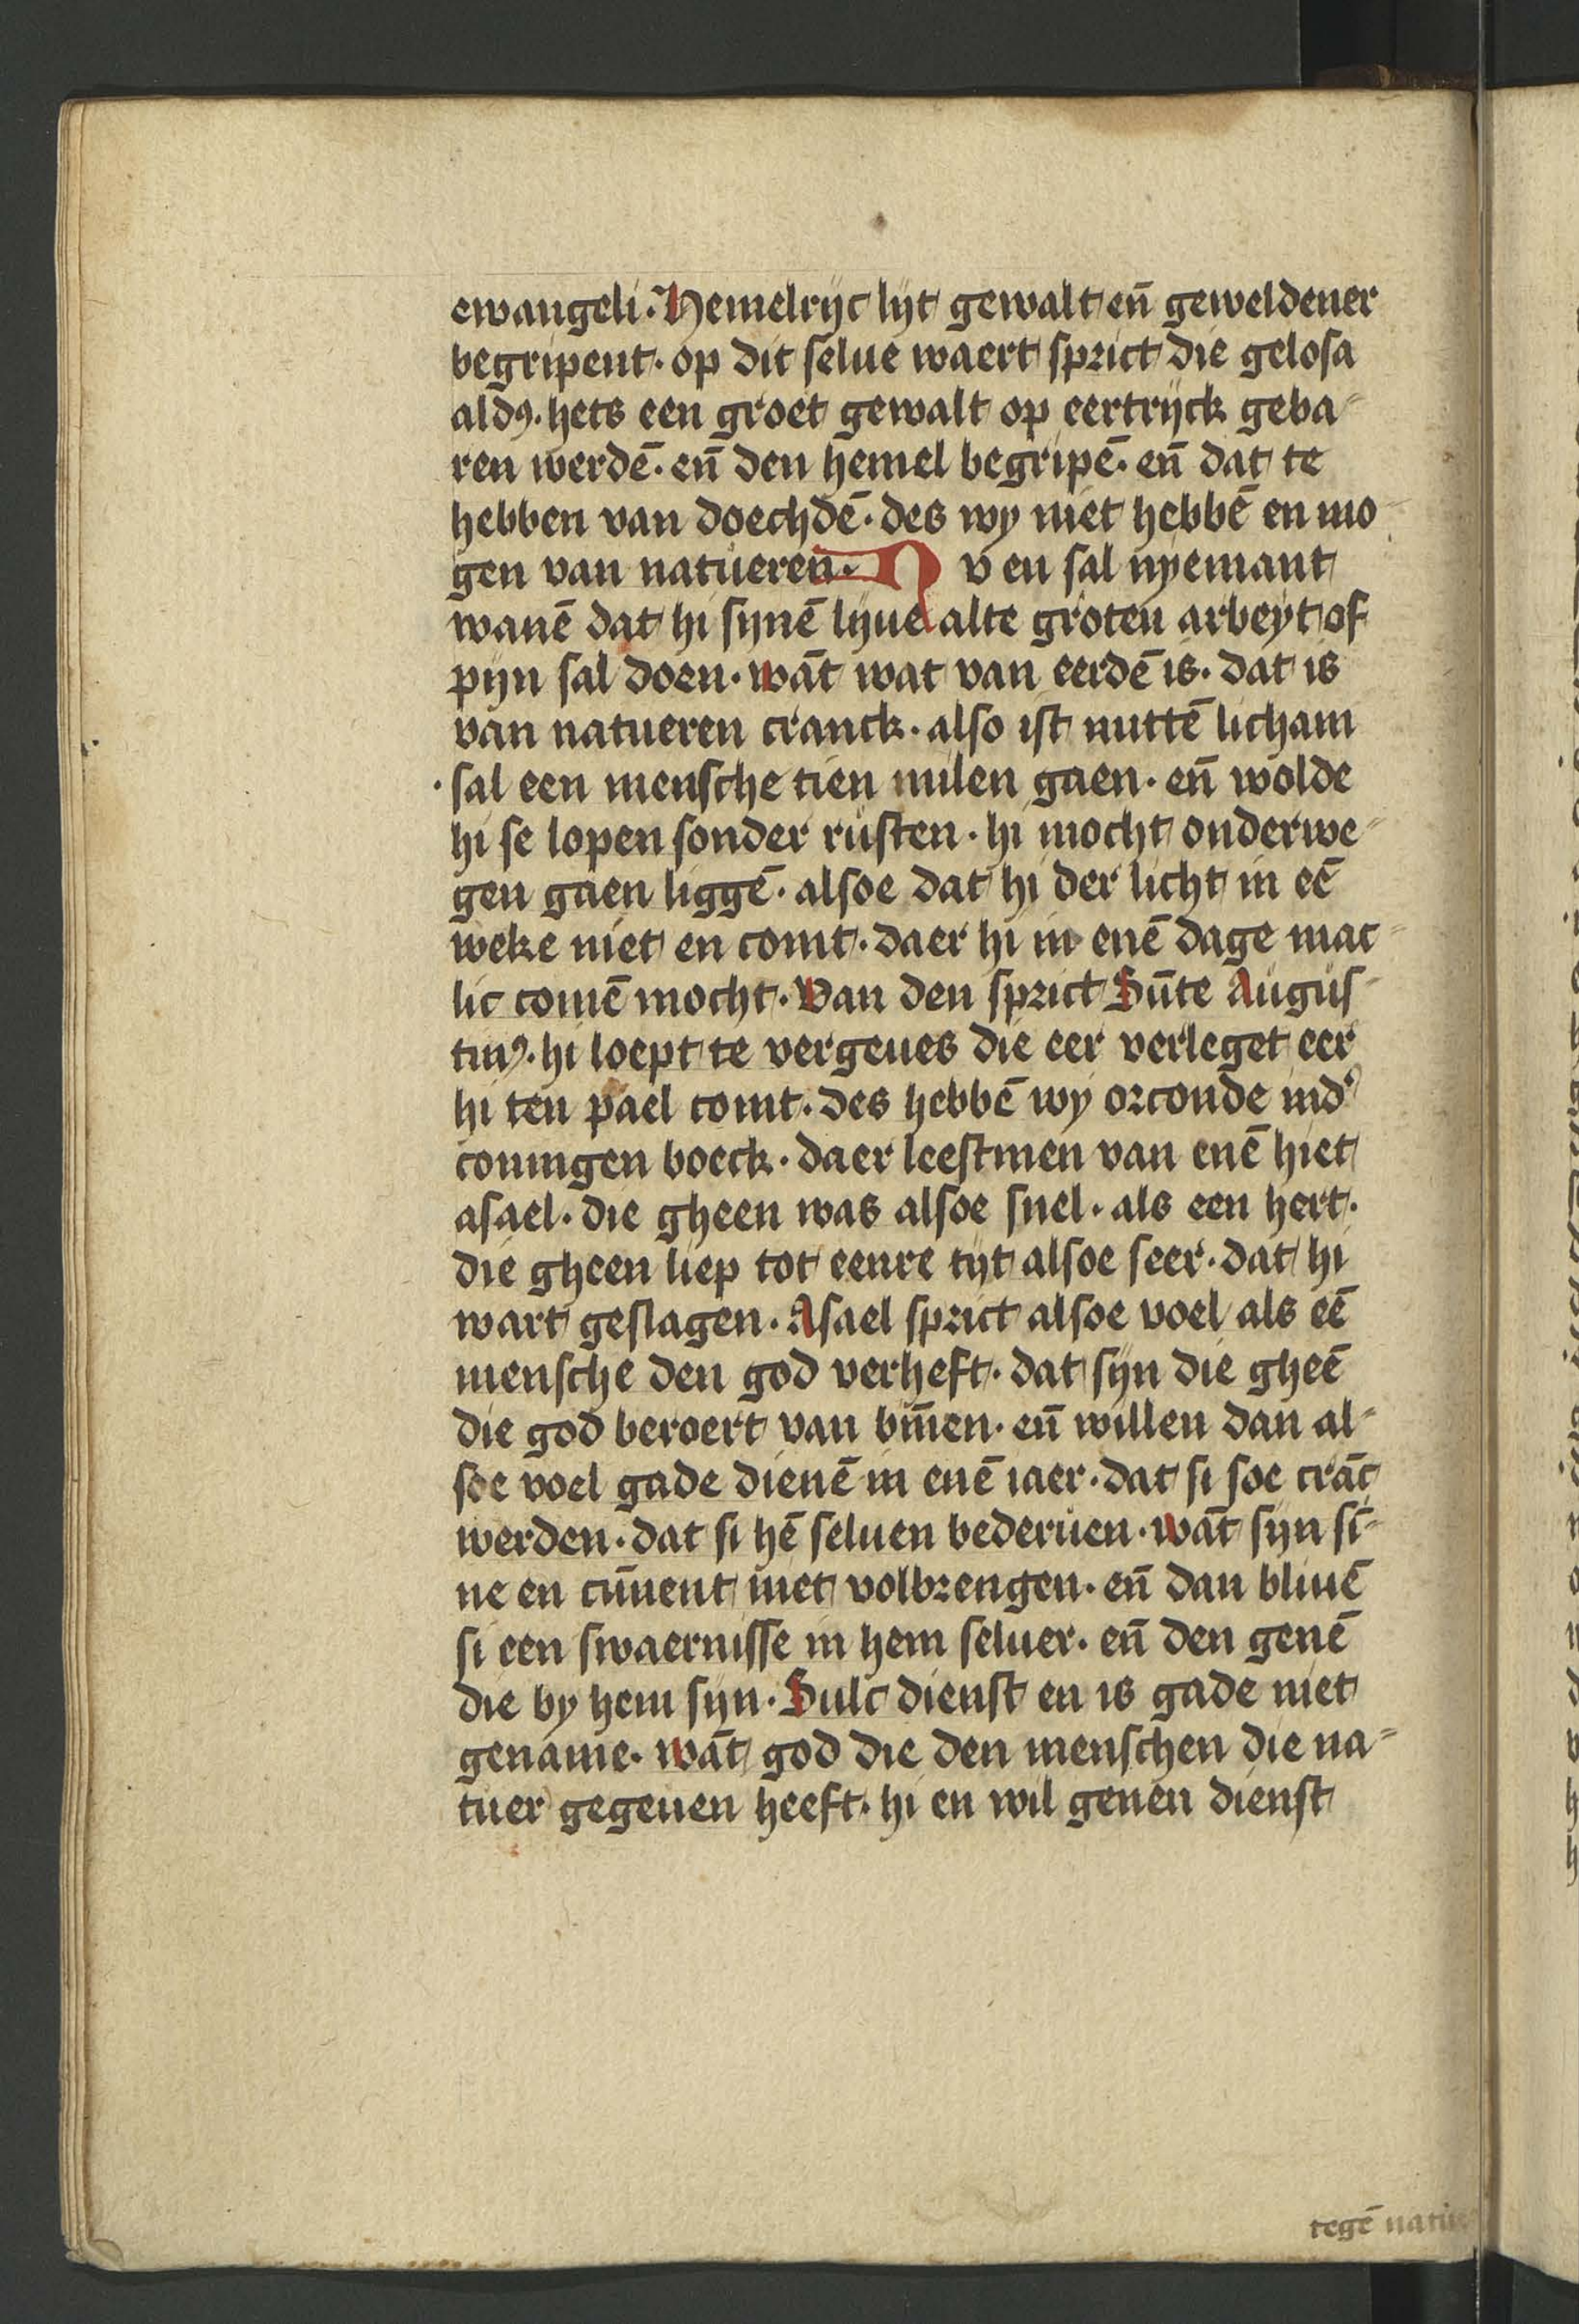 ewangeli. Hemelrijc lijt gewalt en̄ geweldener
begripent. op dit selue waert sprict die gelosa
aldꝰ. hets een groet gewalt op eertrijck geba⸗
ren werdē. en̄ den hemel begripē. en̄ dat te
hebben van doechdē. des wy niet hebbē en mo
gen van natueren. Nv en sal nyemant
wanē dat hi sijnē lijue alte groten arbeyt of
pijn sal doen. wāt wat van eerdē is. dat is
van natueren cranck. also ist nuttē licham
. sal een mensche tien milen gaen. en̄ wolde
hi se lopen sonder rusten. hi mocht onderwe⸗
gen gaen liggē. alsoe dat hi der licht in eē
weke niet en comt. daer hi in enē dage mac⸗
lic comē mocht. Van den sprict Sūte Augus⸗
tinꝰ. hi loept te vergeues die eer verleget eer
hi ten pael comt. des hebbē wy orconde indʾ
coningen boeck. daer leestmen van enē hiet
asael. die gheen was alsoe snel. als een hert.
die gheen liep tot eenre tijt alsoe seer. dat hi
wart geslagen. Asael sprict alsoe voel als eē
mensche den god verheft. dat sijn die gheē
die god beroert van bīnen. en̄ willen dan al⸗
soe voel gade dienē in enē iaer. dat si soe crāc
werden. dat si hē seluen bederuen. wāt sijn sī⸗
ne en cūnent niet volbrengen. en̄ dan bliuē
si een swaernisse in hem seluer. en̄ den genē
die by hem sijn. Sulc dienst en is gade niet
gename. wāt god die den menschen die na⸗
tuer gegeuen heeft. hi en wil genen dienst
tegē natue